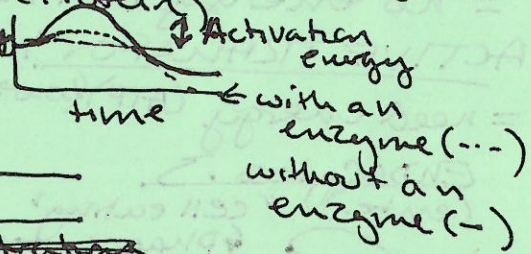 Activation
energy
time
← with an
enzyme (---)
without an
enzyme (-)